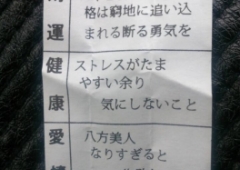 運 格は窮地に追い込
まれる断る勇気を
健康 ストレスがたま
やすい余り
気にしないこと
愛 八方美人
なりすぎると